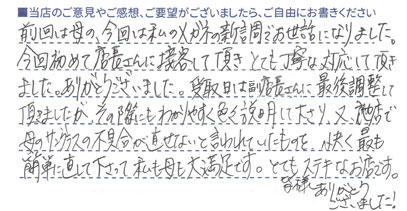 ■当店のご意見やご感想、ご要望がございましたら、ご自由にお書きください
前回は母の、今回は私のメガネの新調でお世話になりました。
今回初めて店長さんに接客して頂きとても丁寧な対応して頂き
ました。ありがとうございました。受取日は副店長さんに最後調整して
頂きましたが、その際にもわかりやすく色々説明して下さり、又、他店で
母のサングラスの不具合が直せないと言われていたものを、快く最も
簡単に直して下さって私も母も大満足です。とてもステキなお店です。
皆様ありがとう
ございました！